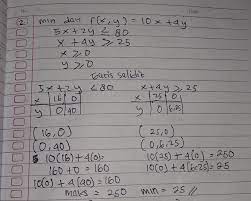 2. min dari f(x,y) = 10x + 4y
5x + 2y ≤ 80
x + 4y ≥ 25
x ≥ 0
y ≥ 0
Garis selidik
5x + 2y ≤ 80 x + 4y ≥ 25
x | 16 | 0 x | 25 | 0
y | 0 | 40 y | 0 | 6.25
(16,0) (25,0)
(0,40) (0,6.25)
10(16) + 4(0) 10(25) + 4(0) = 250
160 + 0 = 160 10(0) + 4(6.25) = 25
10(0) + 4(40) = 160
maks = 250 min = 25 //